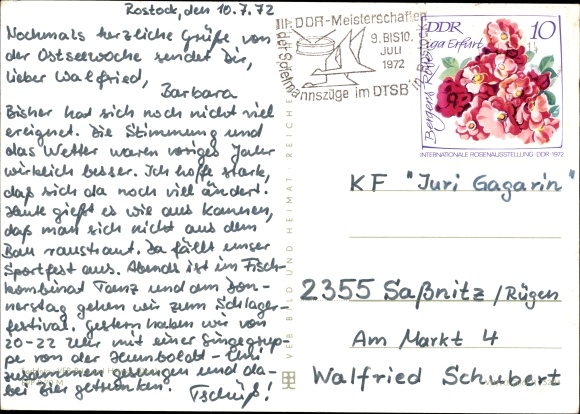 Rostock, den 10.7.72
Nochmals herzliche Grüße von
der Ostseewoche sendet Dir,
lieber Walfried,
Barbara
Bisher hat sich noch nicht viel
ereignet. Die Stimmung und
das Wetter waren voriges Jahr
wirklich besser. Ich hoffe stark,
daß sich da noch viel ändert.
Heute gießt es wie aus Kannen,
daß man sich nicht aus dem
Bau raustraut. Da fällt unser
Sportfest aus. Abends ist im Fisch-
kombinat Tanz und am Don-
nerstag gehen wir zum Schlager-
festival. Gestern haben wir von
20-22 Uhr mit einer Singegrup-
pe von der Humboldt-Uni
zusammen gesungen und da-
bei Bier getrunken.
Tschüß!
VEB BILD UND HEIMAT REICHE
III. DDR-Meisterschaften
9. BIS 10.
JULI
1972
der Spielmannszüge im DTSB in Rostock
DDR 10
iga Erfurt
Bergers Rose
INTERNATIONALE ROSENAUSSTELLUNG DDR-1972
KF "Juri Gagarin"
2355 Saßnitz /Rügen
Am Markt 4
Walfried Schubert